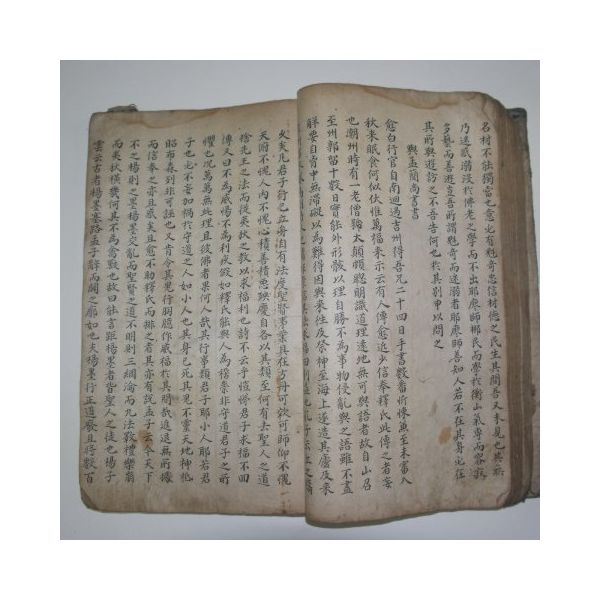 名材不能獨當也意必有魁奇忠信材德之民生其間吾又未見也其無
乃迷惑溺沒於佛老之學而不出耶廖師郴民而學於衡山氣專而容寂
多藝而善遊豈吾所謂魁奇而迷溺者耶廖師善知人若不在其身必在
其所與遊訪之不吾告何也於其別申以問之
與孟簡尚書書
愈白行官自南廻過吉州得吾兄二十四日手書數番忻悚兼至未審入
秋來眠食何似伏惟萬福來示云有人傳愈近少信奉釋氏此傳之者妄
也潮州時有一老僧號太顚頗聰明識道理遠地無可與語者故自山召
至州郭留十數日實能外形骸以理自勝不為事物侵亂與之語雖不盡
解要自胷中無滯礙以為難得因與來往及祭神至海上遂造其廬及來
久矣凡君子行己立身自有法度聖賢事業具在方冊可效可師仰不愧
天俯不愧人內不愧心積善積惡殃慶自各以其類至何有去聖人之道
捨先王之法而從夷狄之教以求福利也詩不云乎愷悌君子求福不回
傳又曰不為威惕不為利疚假如釋氏能與人為禍祟非守道君子之所
懼也况萬萬無此理且彼佛者果何人哉其行事類君子耶小人耶若君
子也必不妄加禍於守道之人如小人也其身已死其鬼不靈天地神祇
昭布森列非可誣也又肯令其鬼行胸臆作威福於其間哉進退無所據
而信奉之亦且惑矣且愈不助釋氏而排之者其亦有說孟子云今天下
不之楊則之墨楊墨交亂而聖賢之道不明則三綱淪而九法斁禮樂崩
而夷狄橫幾何其不為禽獸也故曰能言距楊墨者皆聖人之徒也楊子
雲云古者楊墨塞路孟子辭而闢之廓如也夫楊墨行正道廢且將數百